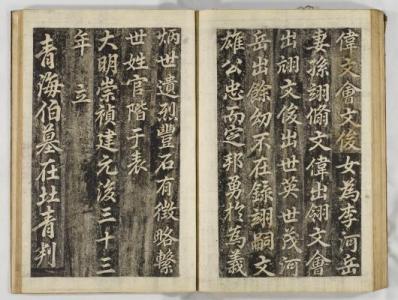 偉文會文俊女為李河岳
妻孫翊備文偉出翊文會
出翊文俊出世英世茂河
岳出餘幼不在錄翊嗣文
雄公忠而定邦勇於為義
炳世遺烈豐石有徵略繫
世姓官階于表
大明崇禎建元後三十三
年 立
青海伯墓在北青判